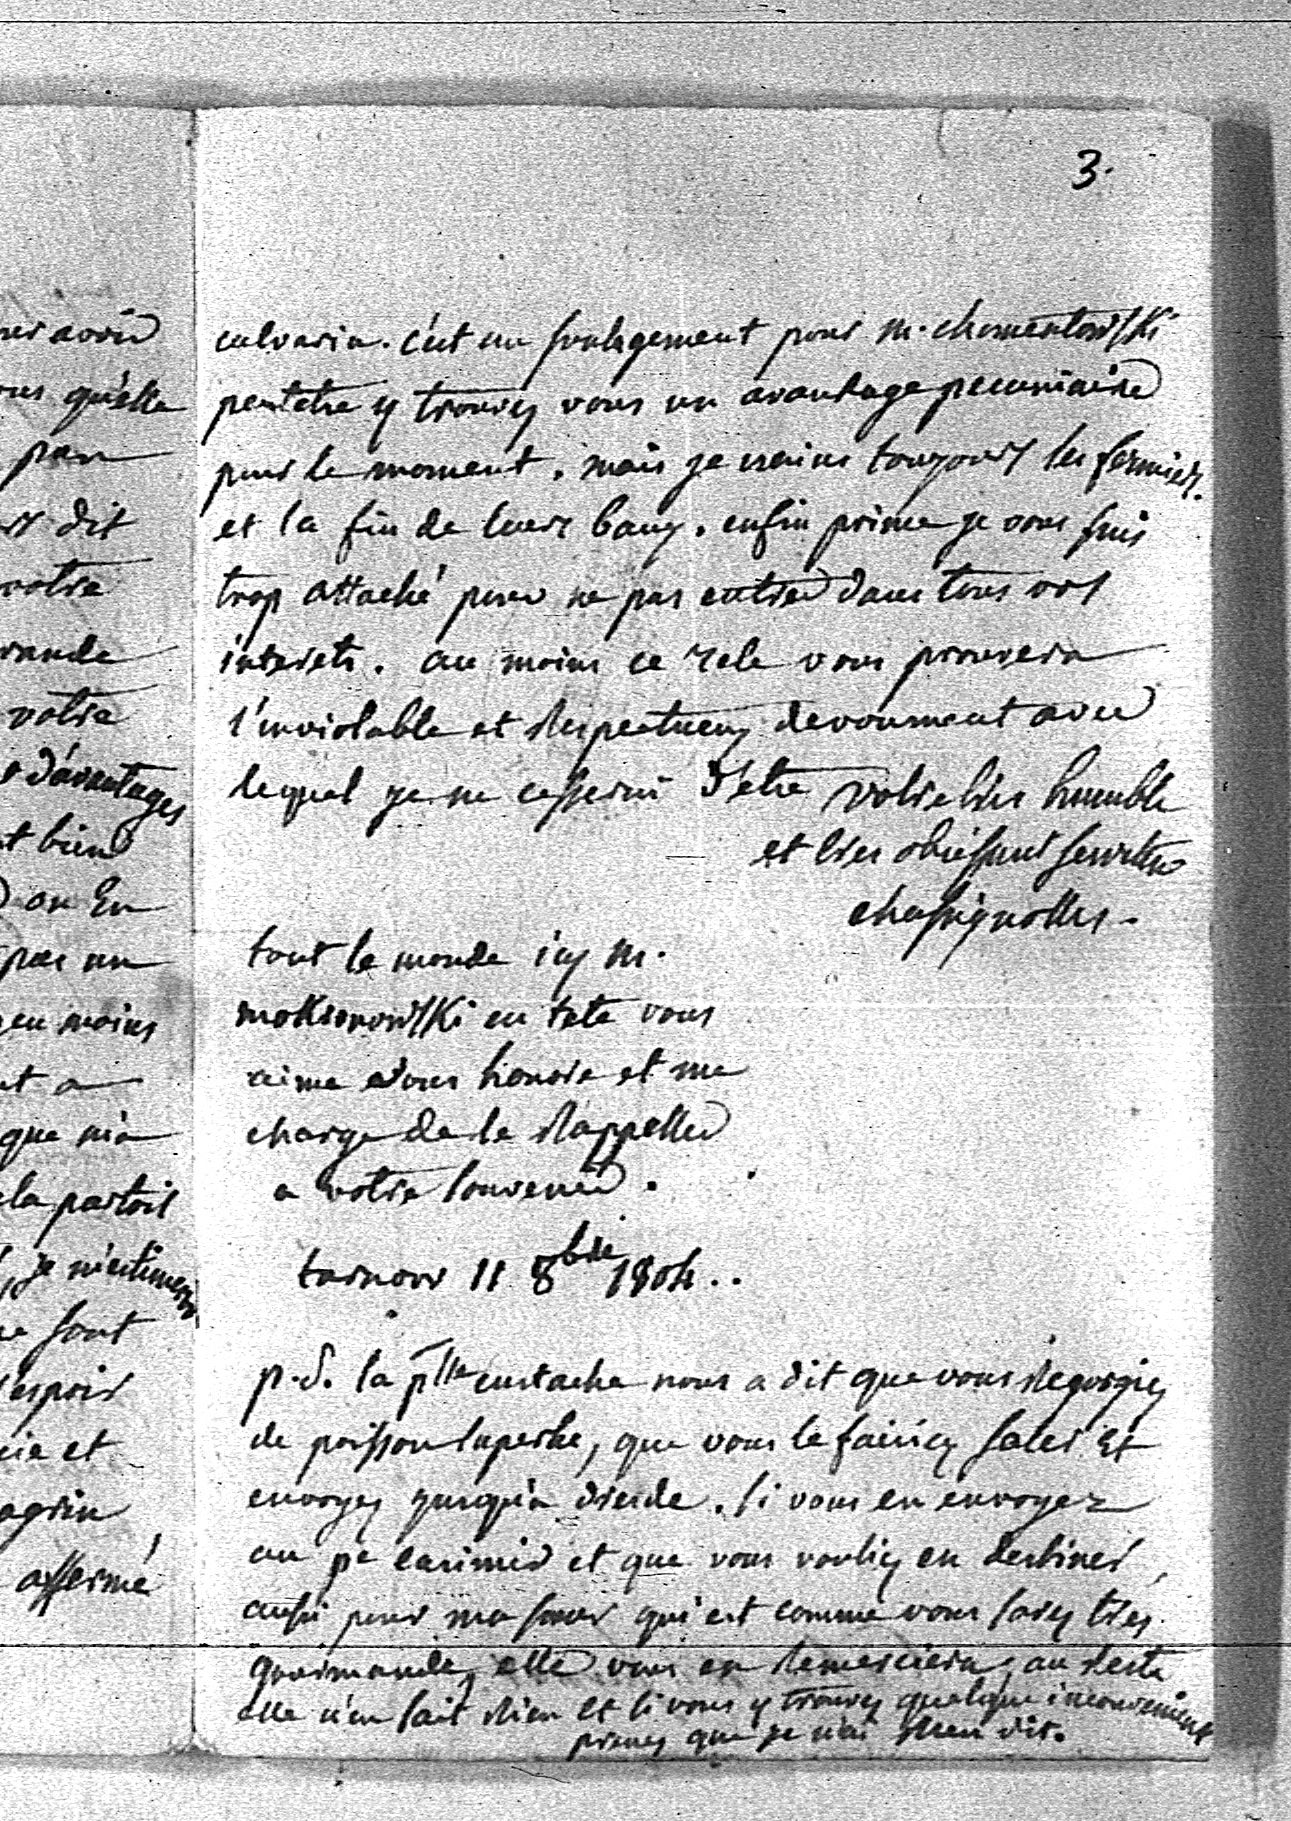 3.
calvaria. c'est un soulagement pour m. chomentowski
peutetre y trouvez vous un avantage pecuniaire
pour le moment. mais je crains toujours les fermiers.
et la fin de leurs baux. enfin prince je vous suis
trop attaché pour ne pas entrer dans tous vos
interets. au moins ce zele vous prouvera
l'inviolable et Respectueux devoument avec
lequel je ne cesserai d'etre votre très humble
et tres obeissant serviteur
chassignolles.
tout le monde icy m.
mokronowski en tete vous
aime vous honore et me
charge de le Rappeller
a votre souvenir.
tarnow 11 8bre 1804..
p.s. la pelle eustache nous a dit que vous Regorgiez
de poisson superbe, que vous le faisiez saler Et
envoyez jusqu'a dresde. si vous en envoyez
au pe casimir et que vous vouliez en destiner
aussi pour ma soeur qui est comme vous savez très
gourmande, elle vous en Remerciera, au reste
elle n'en sait Rien et si vous y trouvez quelqu'inconvenient
prenez que je n'ai Rien dit.
avoir
qu'elle
par
dit
votre
votre
d'avantages
bien
on En
pas un
moins
a
que m'a
la partois
je m'estimerai
sont
espoir
et
affermé